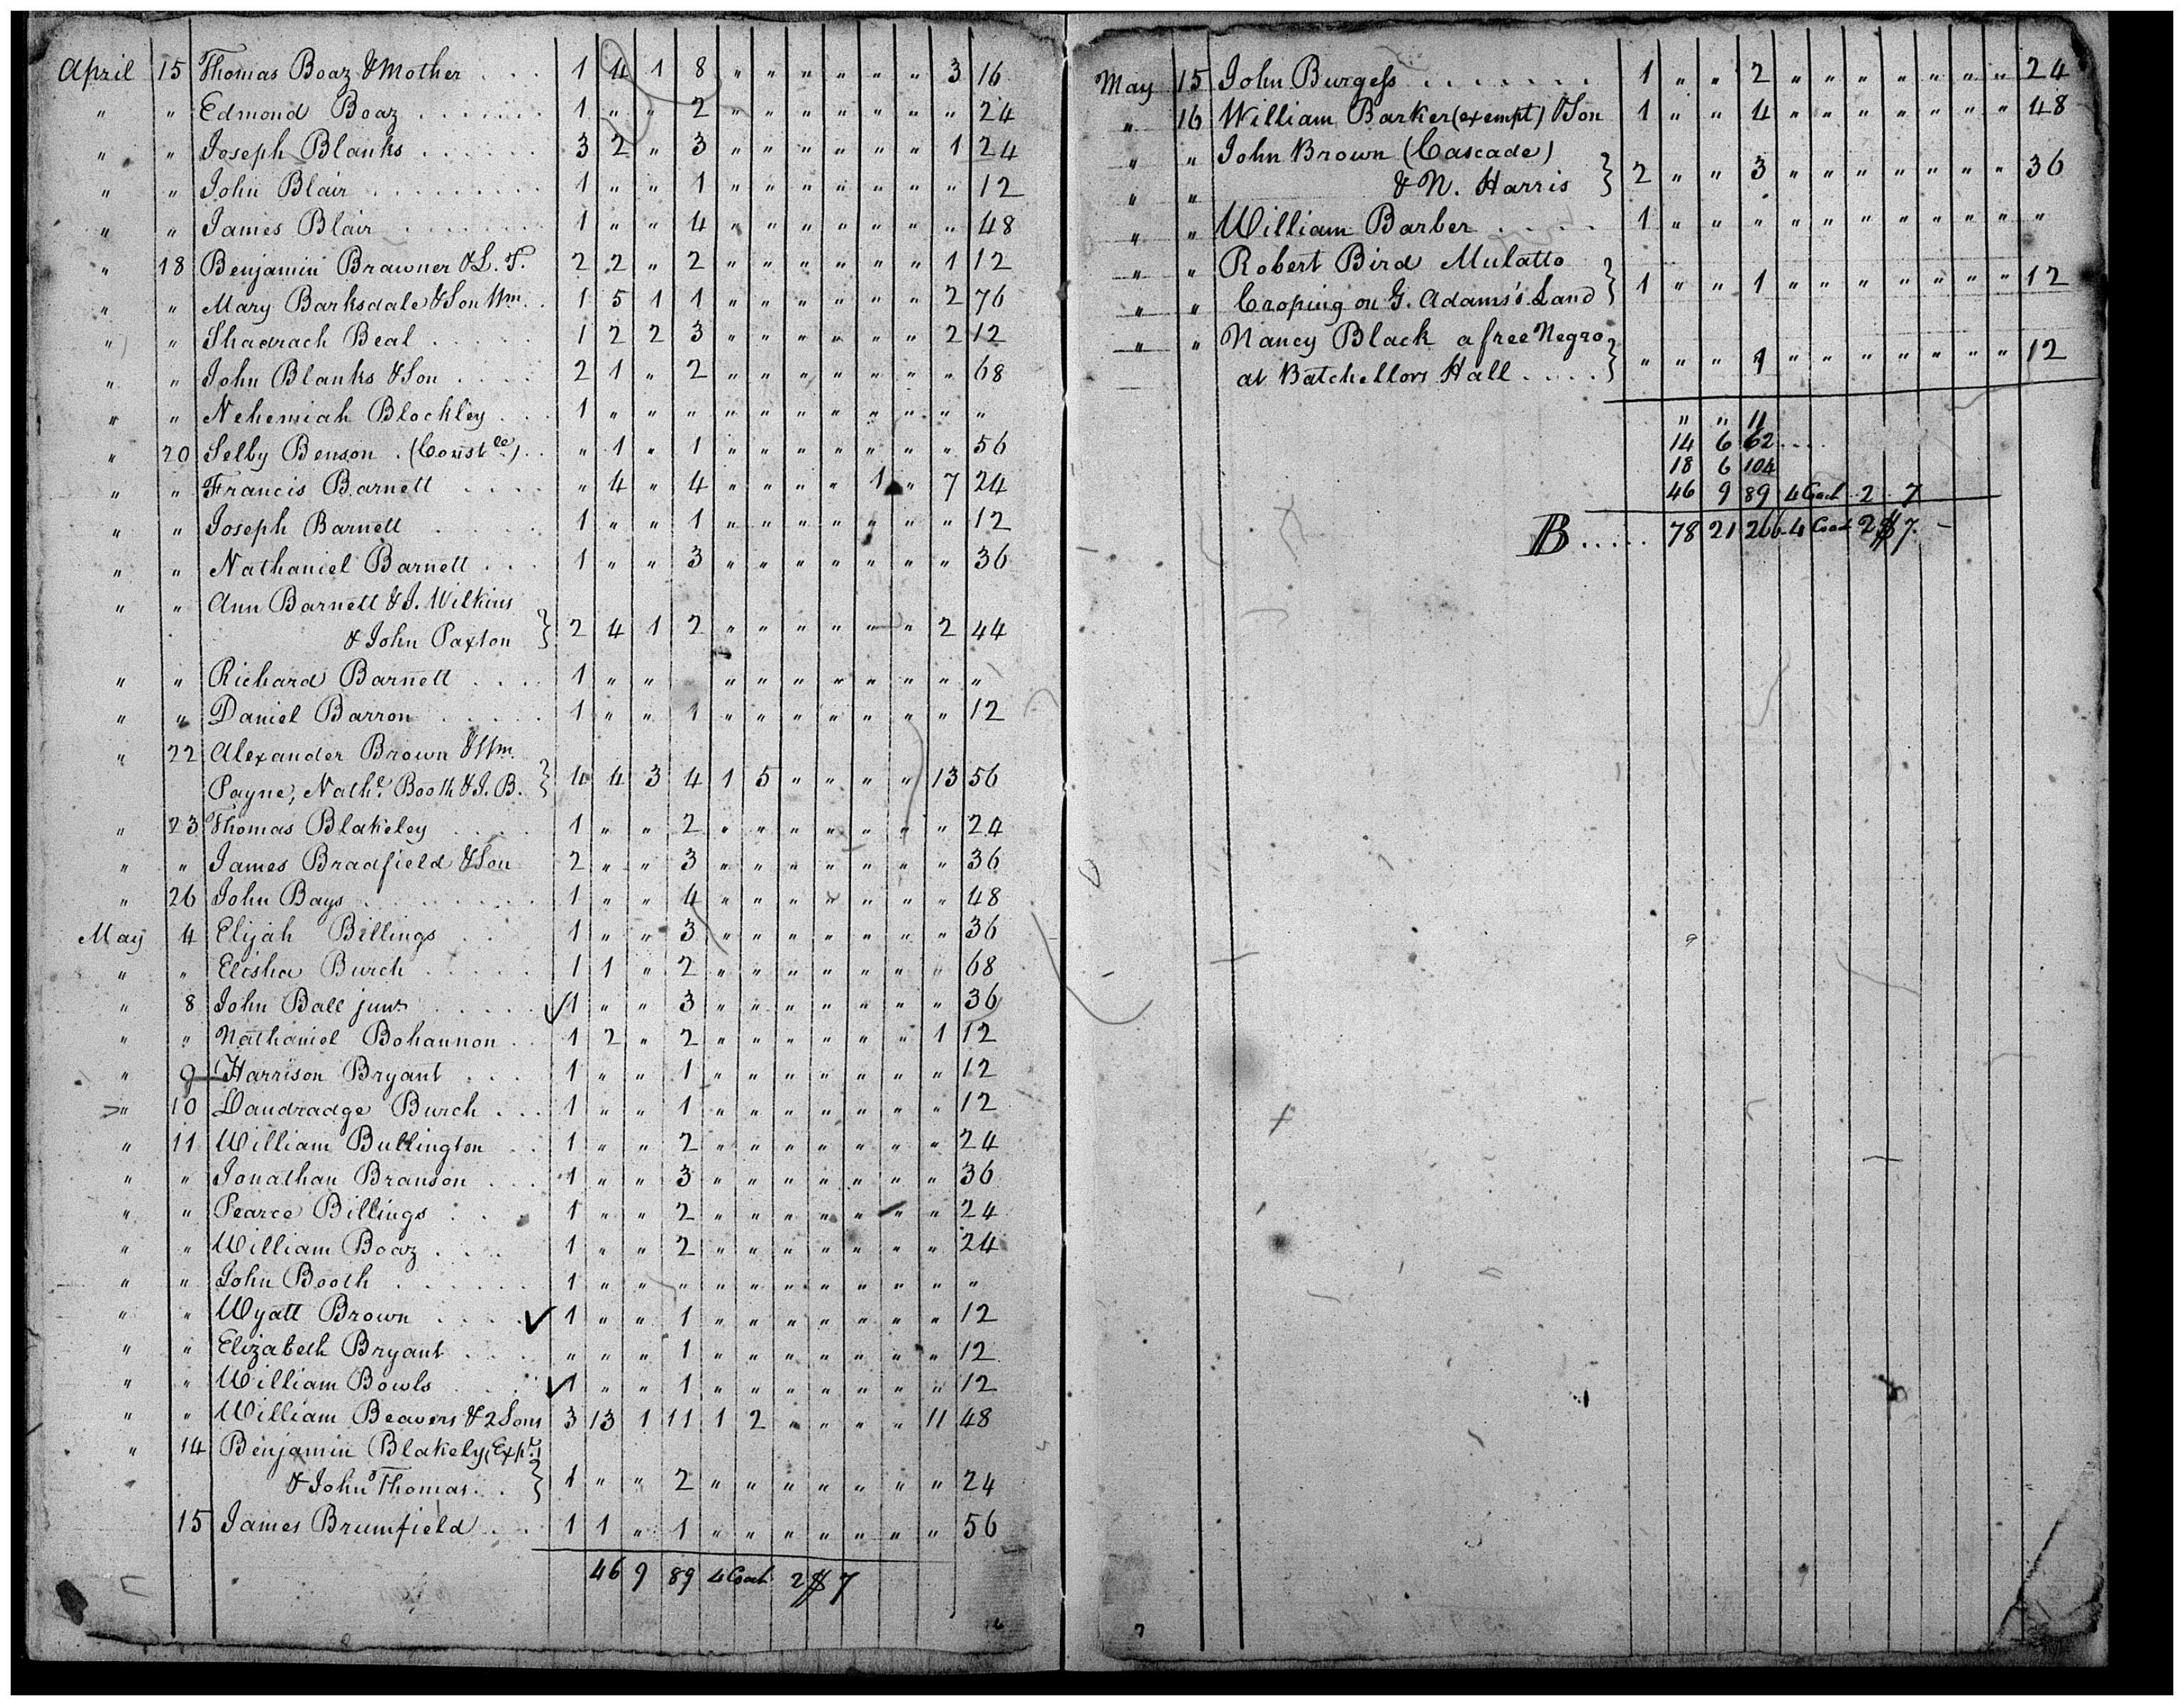 April 15 Thomas Boaz & Mother . . . 1 4 1 8 " " " " " " 3 16
" " Edmond Boaz . . . . . . . 1 " " 2 " " " " " " " 24
" " Joseph Blanks . . . . . . 3 2 " 3 " " " " " " 1 24
" " John Blair . . . . . . . . . 1 " " 1 " " " " " " " 12
" " James Blair . . . . . . . 1 " " 4 " " " " " " " 48
" 18 Benjamin Brawner & L. T. 2 2 " 2 " " " " " " 1 12
" " Mary Barksdale & Son Wm. . 1 5 1 1 " " " " " " 2 76
" " Shadrach Beal . . . . . 1 2 2 3 " " " " " " 2 12
" " John Blanks & Son . . . . 2 1 " 2 " " " " " " " 68
" " Nehemiah Blockley . . . 1 " " " " " " " " " " "
" 20 Selby Benson . (Constle) . . " 1 " 1 " " " " " " " 56
" " Francis Barnett . . . . " 4 " 4 " " " " 1 " 7 24
" " Joseph Barnett . . . . . 1 " " 1 " " " " " " " 12
" " Nathaniel Barnett . . . 1 " " 3 " " " " " " " 36
" " Ann Barnett & J. Wilkins
& John Paxton } 2 4 1 2 " " " " " " 2 44
" " Richard Barnett . . . . 1 " " " " " " " " " "
" " Daniel Barron . . . . . 1 " " 1 " " " " " " " 12
" 22 Alexander Brown & Wm.
Payne, Nathl. Booth & J. B. } 4 4 3 4 1 5 " " " " 13 56
" 23 Thomas Blakeley . . . . 1 " " 2 " " " " " " " 24
" " James Bradfield & Son 2 " " 3 " " " " " " " 36
" 26 John Bays . . . . . . . . 1 " " 4 " " " " " " " 48
May 4 Elijah Billings . . 1 " " 3 " " " " " " " 36
" " Elisha Burch . . . . . 1 1 " 2 " " " " " " " 68
" 8 John Ball junr. . . . . . 1 " " 3 " " " " " " " 36
" " Nathaniel Bohannon . . 1 2 " 2 " " " " " " 1 12
" 9 Harrison Bryant . . . 1 " " 1 " " " " " " " 12
" 10 Dandradge Burch . . . 1 " " 1 " " " " " " " 12
" 11 William Bullington . . 1 " " 2 " " " " " " " 24
" " Jonathan Branson . . . 1 " " 3 " " " " " " " 36
" " Pearce Billings . . . 1 " " 2 " " " " " " " 24
" " William Boaz . . . . 1 " " 2 " " " " " " " 24
" " John Booth . . . . . . 1 " " " " " " " " " " "
" " Wyatt Brown . . . . 1 " " 1 " " " " " " " 12
" " Elizabeth Bryant . . . " " " 1 " " " " " " " 12
" " William Bowls . . . . 1 " " 1 " " " " " " " 12
" " William Beavers & 2 Sons 3 13 1 11 1 2 " " " " 11 48
" 14 Benjamin Blakely (Expt.)
& John Thomas . . } 1 " " 2 " " " " " " " 24
15 James Brumfield . . . 1 1 " 1 " " " " " " " 56
46 9 89 4 Coach 2 $ 7
May 15 John Burgess . . . . . . . 1 " " 2 " " " " " " " 24
" 16 William Barker (exempt) & Son 1 " " 4 " " " " " " " 48
" " John Brown (Cascade)
" " & N. Harris } 2 " " 3 " " " " " " " 36
" " William Barber . . . . 1 " " " " " " " " " " "
" " Robert Bird Mulatto
" " Croping on G. Adams's Land } 1 " " 1 " " " " " " " 12
" " Nancy Black a free Negro
at Batchellors Hall . . . . } " " " 1 " " " " " " " 12
" " 11
14 6 62 . . . .
18 6 104
46 9 89 4 Coach 2 7
B . . . . . 78 21 266 4 Coach 2 $ 7. -